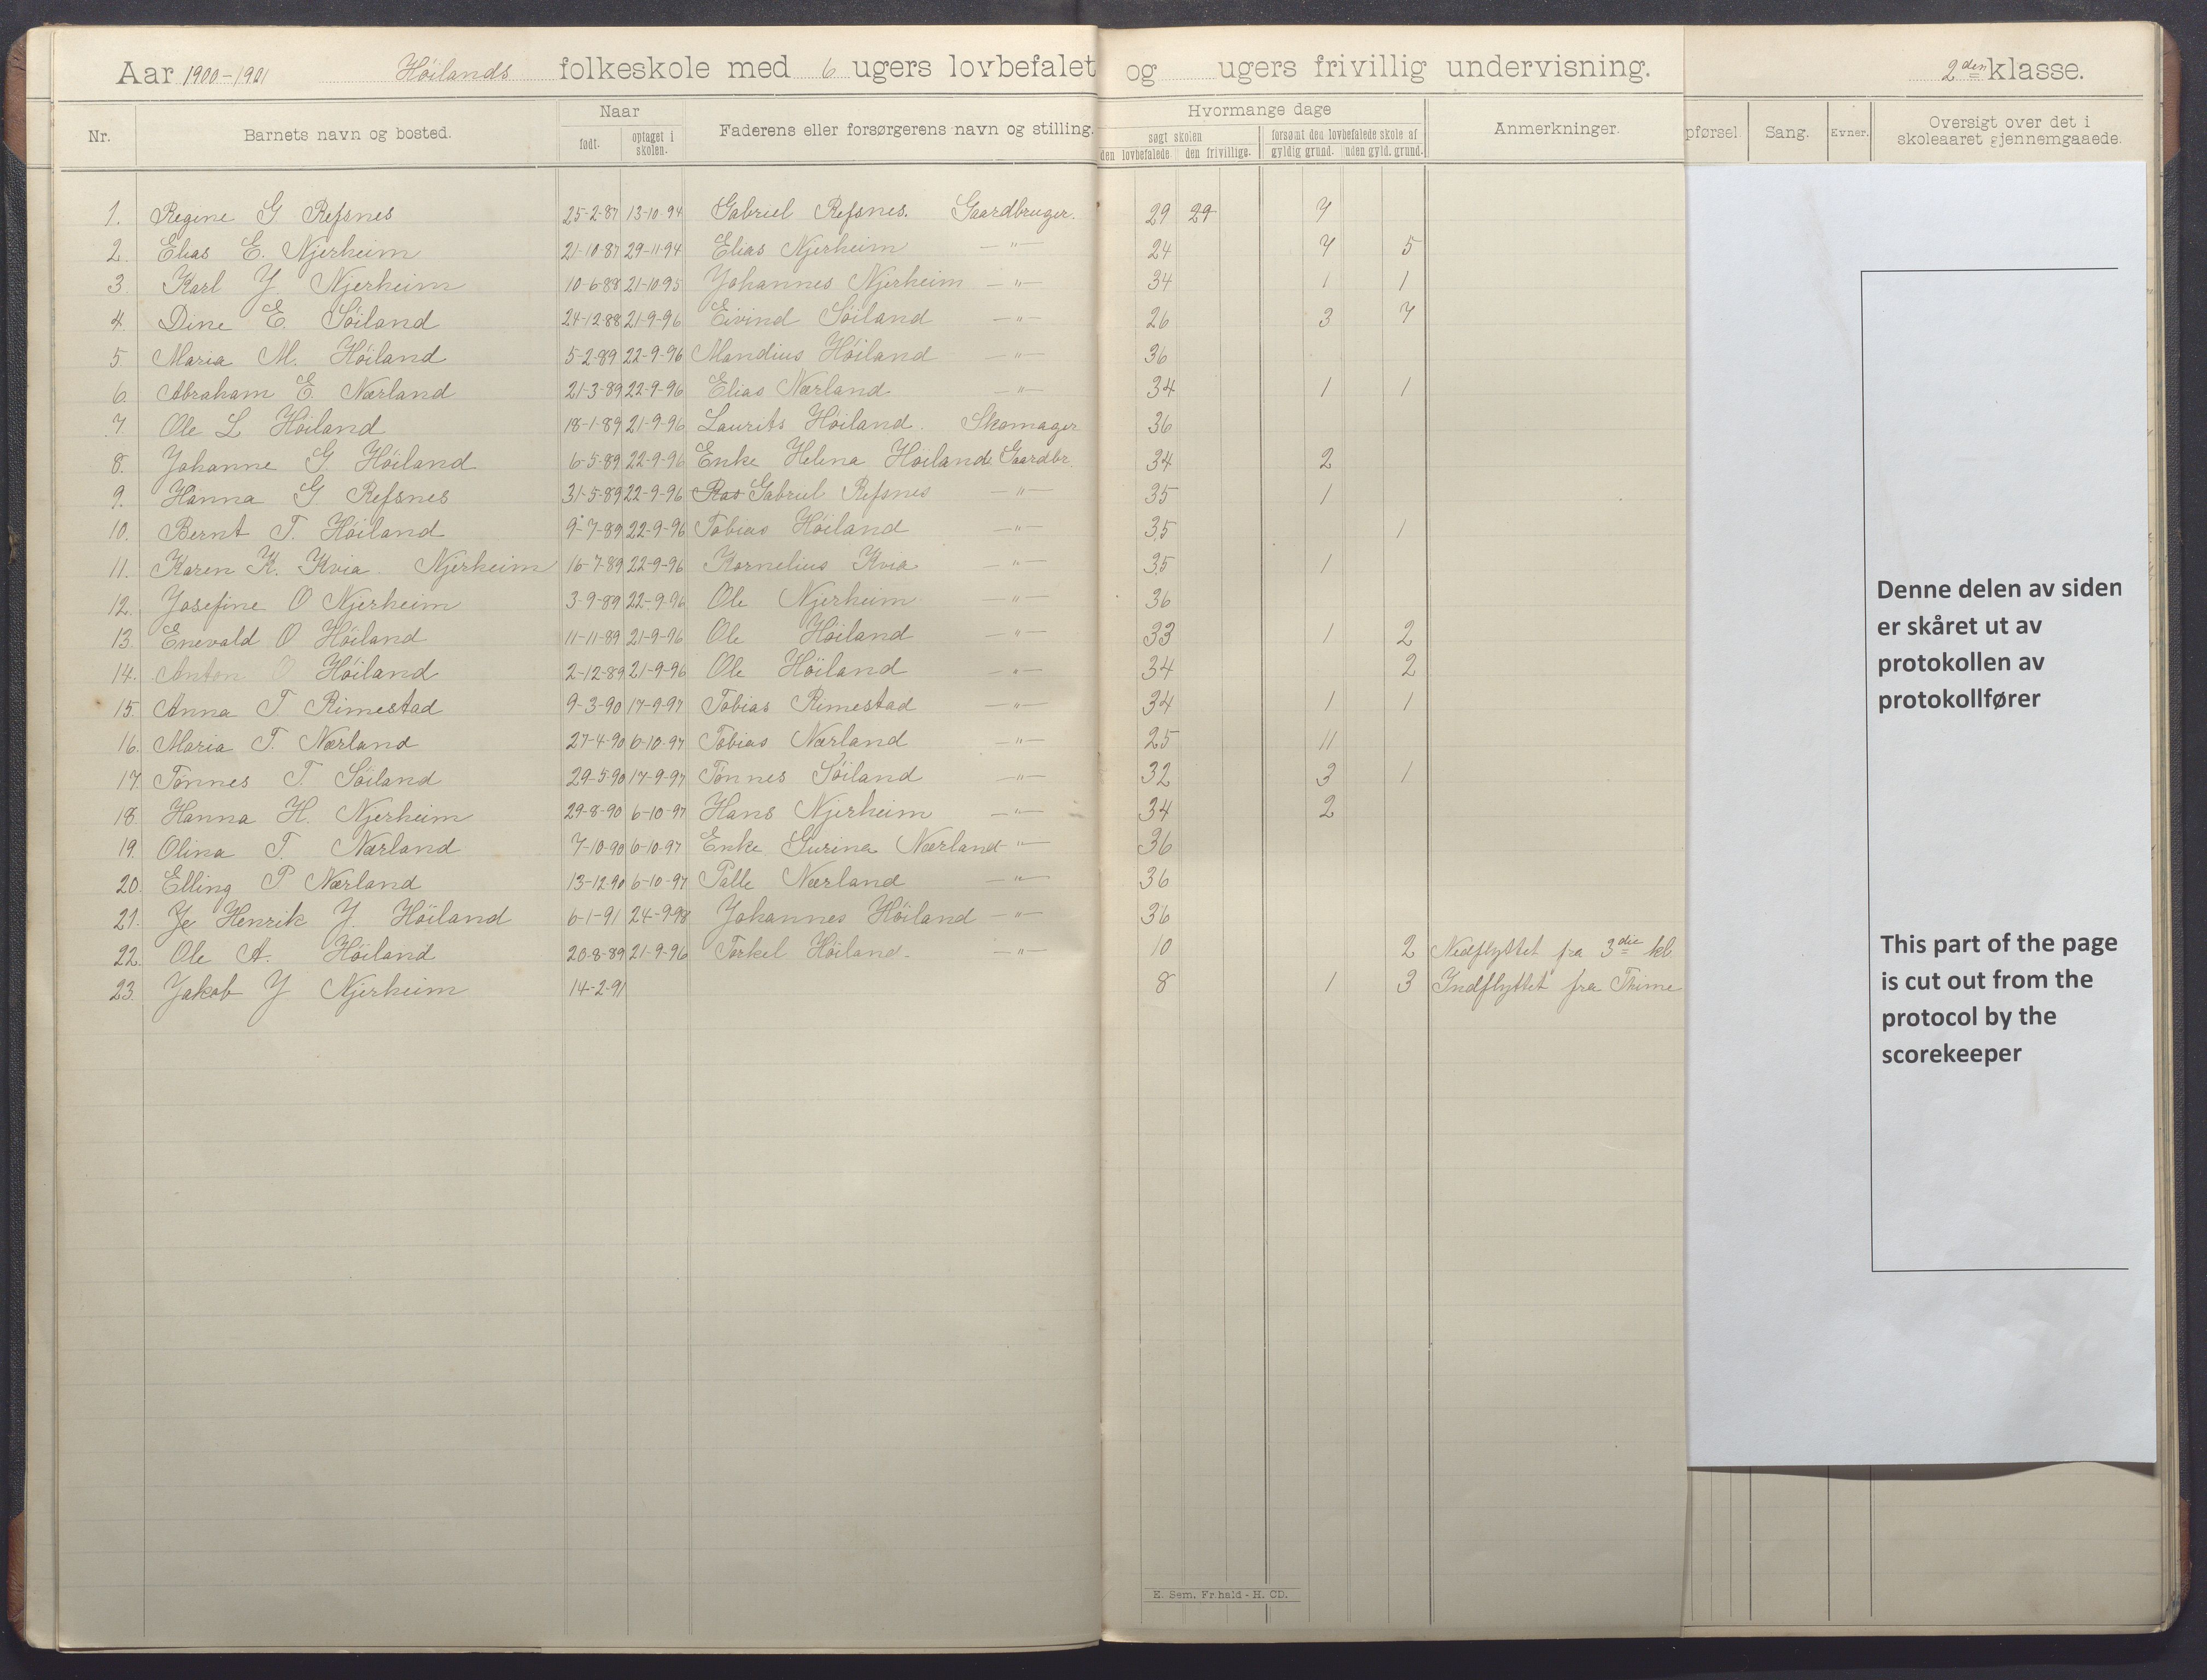 Aar 1900-1901 Höilands folkeskole med 6 ugers lovbefalet og ugers frivillig undervisning. 2den klasse.
Nr. Barnets navn og bosted. Naar født. optaget i skolen. Faderens eller forsørgerens navn og stilling. Hvormange dage søgt skolen den lovbefalede den frivillige. forsømt den lovbefalede skole af gyldig grund. uden gyld. grund. Anmerkninger. pførsel Sang. Evner. Oversigt over det i skoleaaret gjennemgaaede.
1. Regine G Refsnes 25-2-87 13-10-94 Gabriel Refsnes. Gaardbruger. 29 29 7
2. Elias E. Njerheim 21-10-87 29-11-94 Elias Njerheim —"— 24 7 5
3. Karl J Njerheim 10-6-88 21-10-95 Johannes Njerheim —"— 34 1 1
4. Dine E. Söiland 24-12-88 21-9-96 Eivind Söiland —"— 26 3 7
5. Maria M. Höiland 5-2-89 22-9-96 Mandius Höiland —"— 36
6 Abraham E. Nærland 21-3-89 22-9-96 Elias Nærland —"— 34 1 1
7. Ole L Höiland 18-1-89 21-9-96 Laurits Höiland. Skomager 36
8. Johanne G. Höiland 6-5-89 22-9-96 Enke Helena Höiland Gaardbr. 34 2
9. Hanna G. Refsnes 31-5-89 22-9-96 Ras Gabriel Refsnes —"— 35 1
10. Bernt T. Höiland 9-7-89 22-9-96 Tobias Höiland —"— 35 1
11. Karen K. Kvia Njerheim 16-7-89 22-9-96 Kornelius Kvia —"— 35 1
12. Josefine O Njerheim 3-9-89 22-9-96 Ole Njerheim —"— 36
13. Enevald O Höiland 11-11-89 21-9-96 Ole Höiland —"— 33 1 2
14. Anton O Höiland 2-12-89 21-9-96 Ole Höiland —"— 34 2
15. Anna T. Rimestad 9-3-90 17-9-97 Tobias Rimestad —"— 34 1 1
16. Maria T. Nærland 27-4-90 6-10-97 Tobias Nærland —"— 25 11
17. Tönnes T. Söiland 29-5-90 17-9-97 Tönnes Söiland —"— 32 3 1
18. Hanna H. Njerheim 29-8-90 6-10-97 Hans Njerheim —"— 34 2
19. Olina T. Nærland 7-10-90 6-10-97 Enke Gurina Nærland —"— 36
20. Elling P Nærland 13-12-90 6-10-97 Palle Nærland —"— 36
21. Je Henrik J. Höiland 6-1-91 24-9-98 Johannes Höiland —"— 36
22. Ole A. Höiland 20-8-89 21-9-96 Torkel Höiland. —"— 10 2 Nedflyttet fra 3die kl
23. Jakob J Njerheim 14-2-91 8 1 3 Indflyttet fra Thime
E. Sem, Fr.hald - H. CD.
Denne delen av siden
er skåret ut av
protokollen av
protokollfører
This part of the page
is cut out from the
protocol by the
scorekeeper